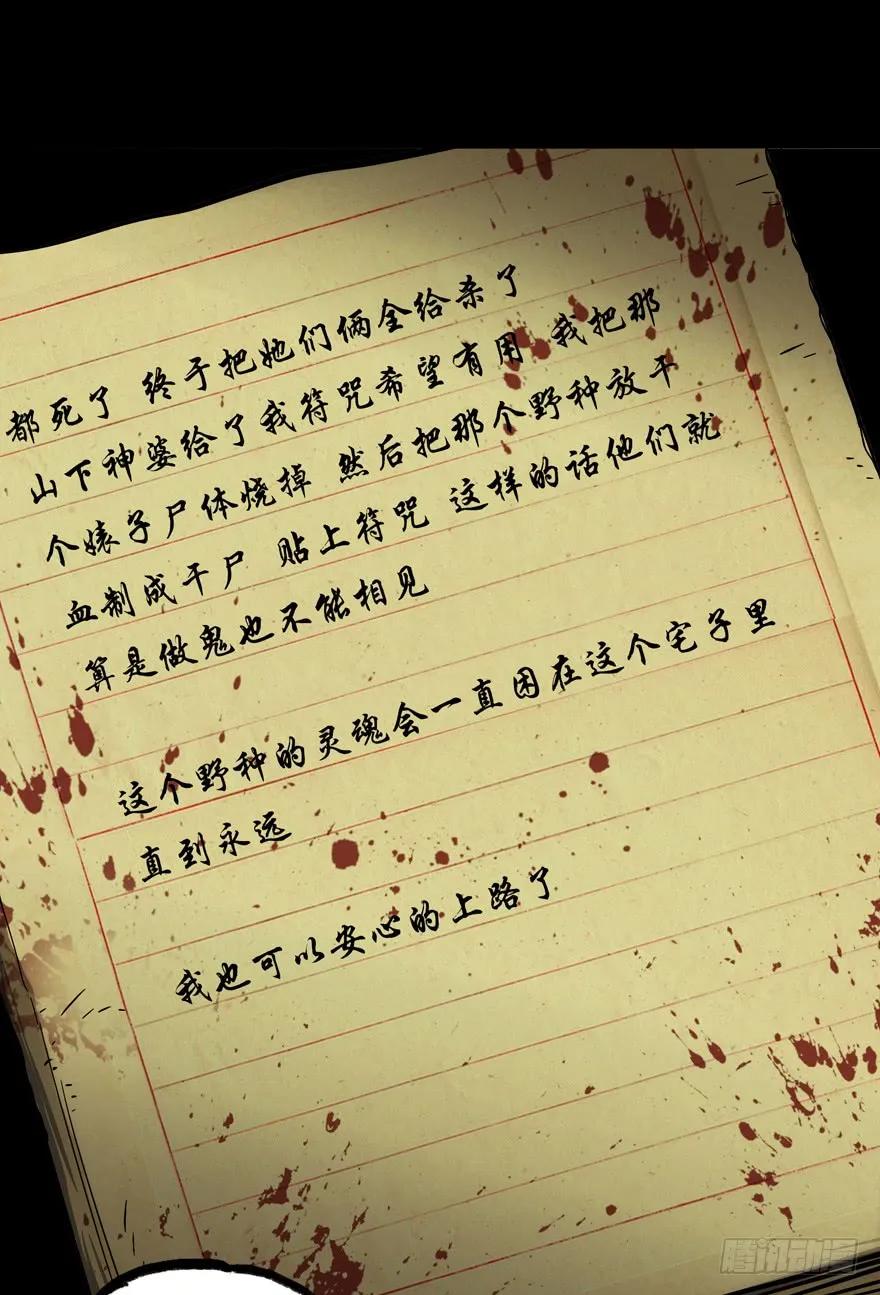 都死了 终于把她们俩全给杀了
山下神婆给了我符咒希望有用 我把那
个婊子尸体烧掉 然后把那个野种放干
血制成干尸 贴上符咒 这样的话他们就
算是做鬼也不能相见
这个野种的灵魂会一直困在这个宅子里
直到永远
我也可以安心的上路了
腾讯动漫